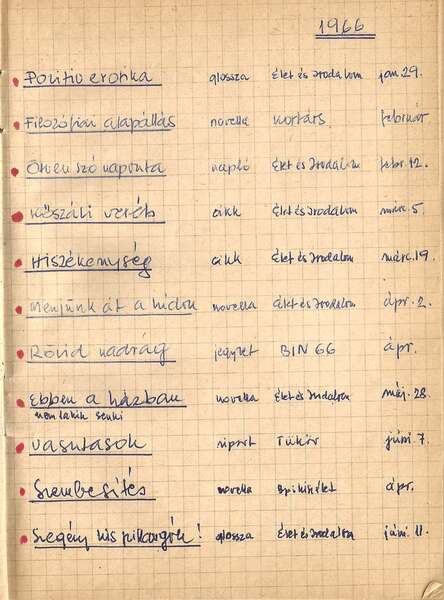 1966
Pozitiv erotika glossza Élet és Irodalom jan. 29.
Filozófiai alapállás novella Kortárs február
Ötven szó naponta napló Élet és Irodalom febr. 12.
Kőszáli veréb cikk Élet és Irodalom márc. 5.
Hiszékenység cikk Élet és Irodalom márc. 19.
Menjünk át a hídon novella Élet és Irodalom ápr. 2.
Rövid nadrág jegyzet BIN 66 ápr.
Ebben a házban novella Élet és Irodalom máj. 28.
nem lakik senki
Vasutasok riport Tükör júni 7.
Szembesítés novella ápr.
Szegény kis pillangók! glossza Élet és Irodalom júni. 11.